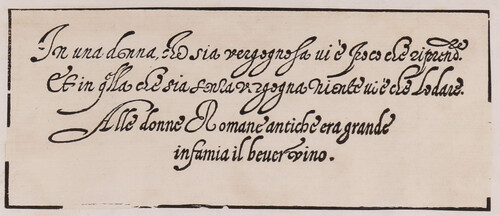 In una donna, che sia vergognosa vi è poco che riprendere.
Et in q̃lla che sia senza vergogna niente vi è che lodare.
Alle donne Romane antiche era grande
infamia il bever vino.